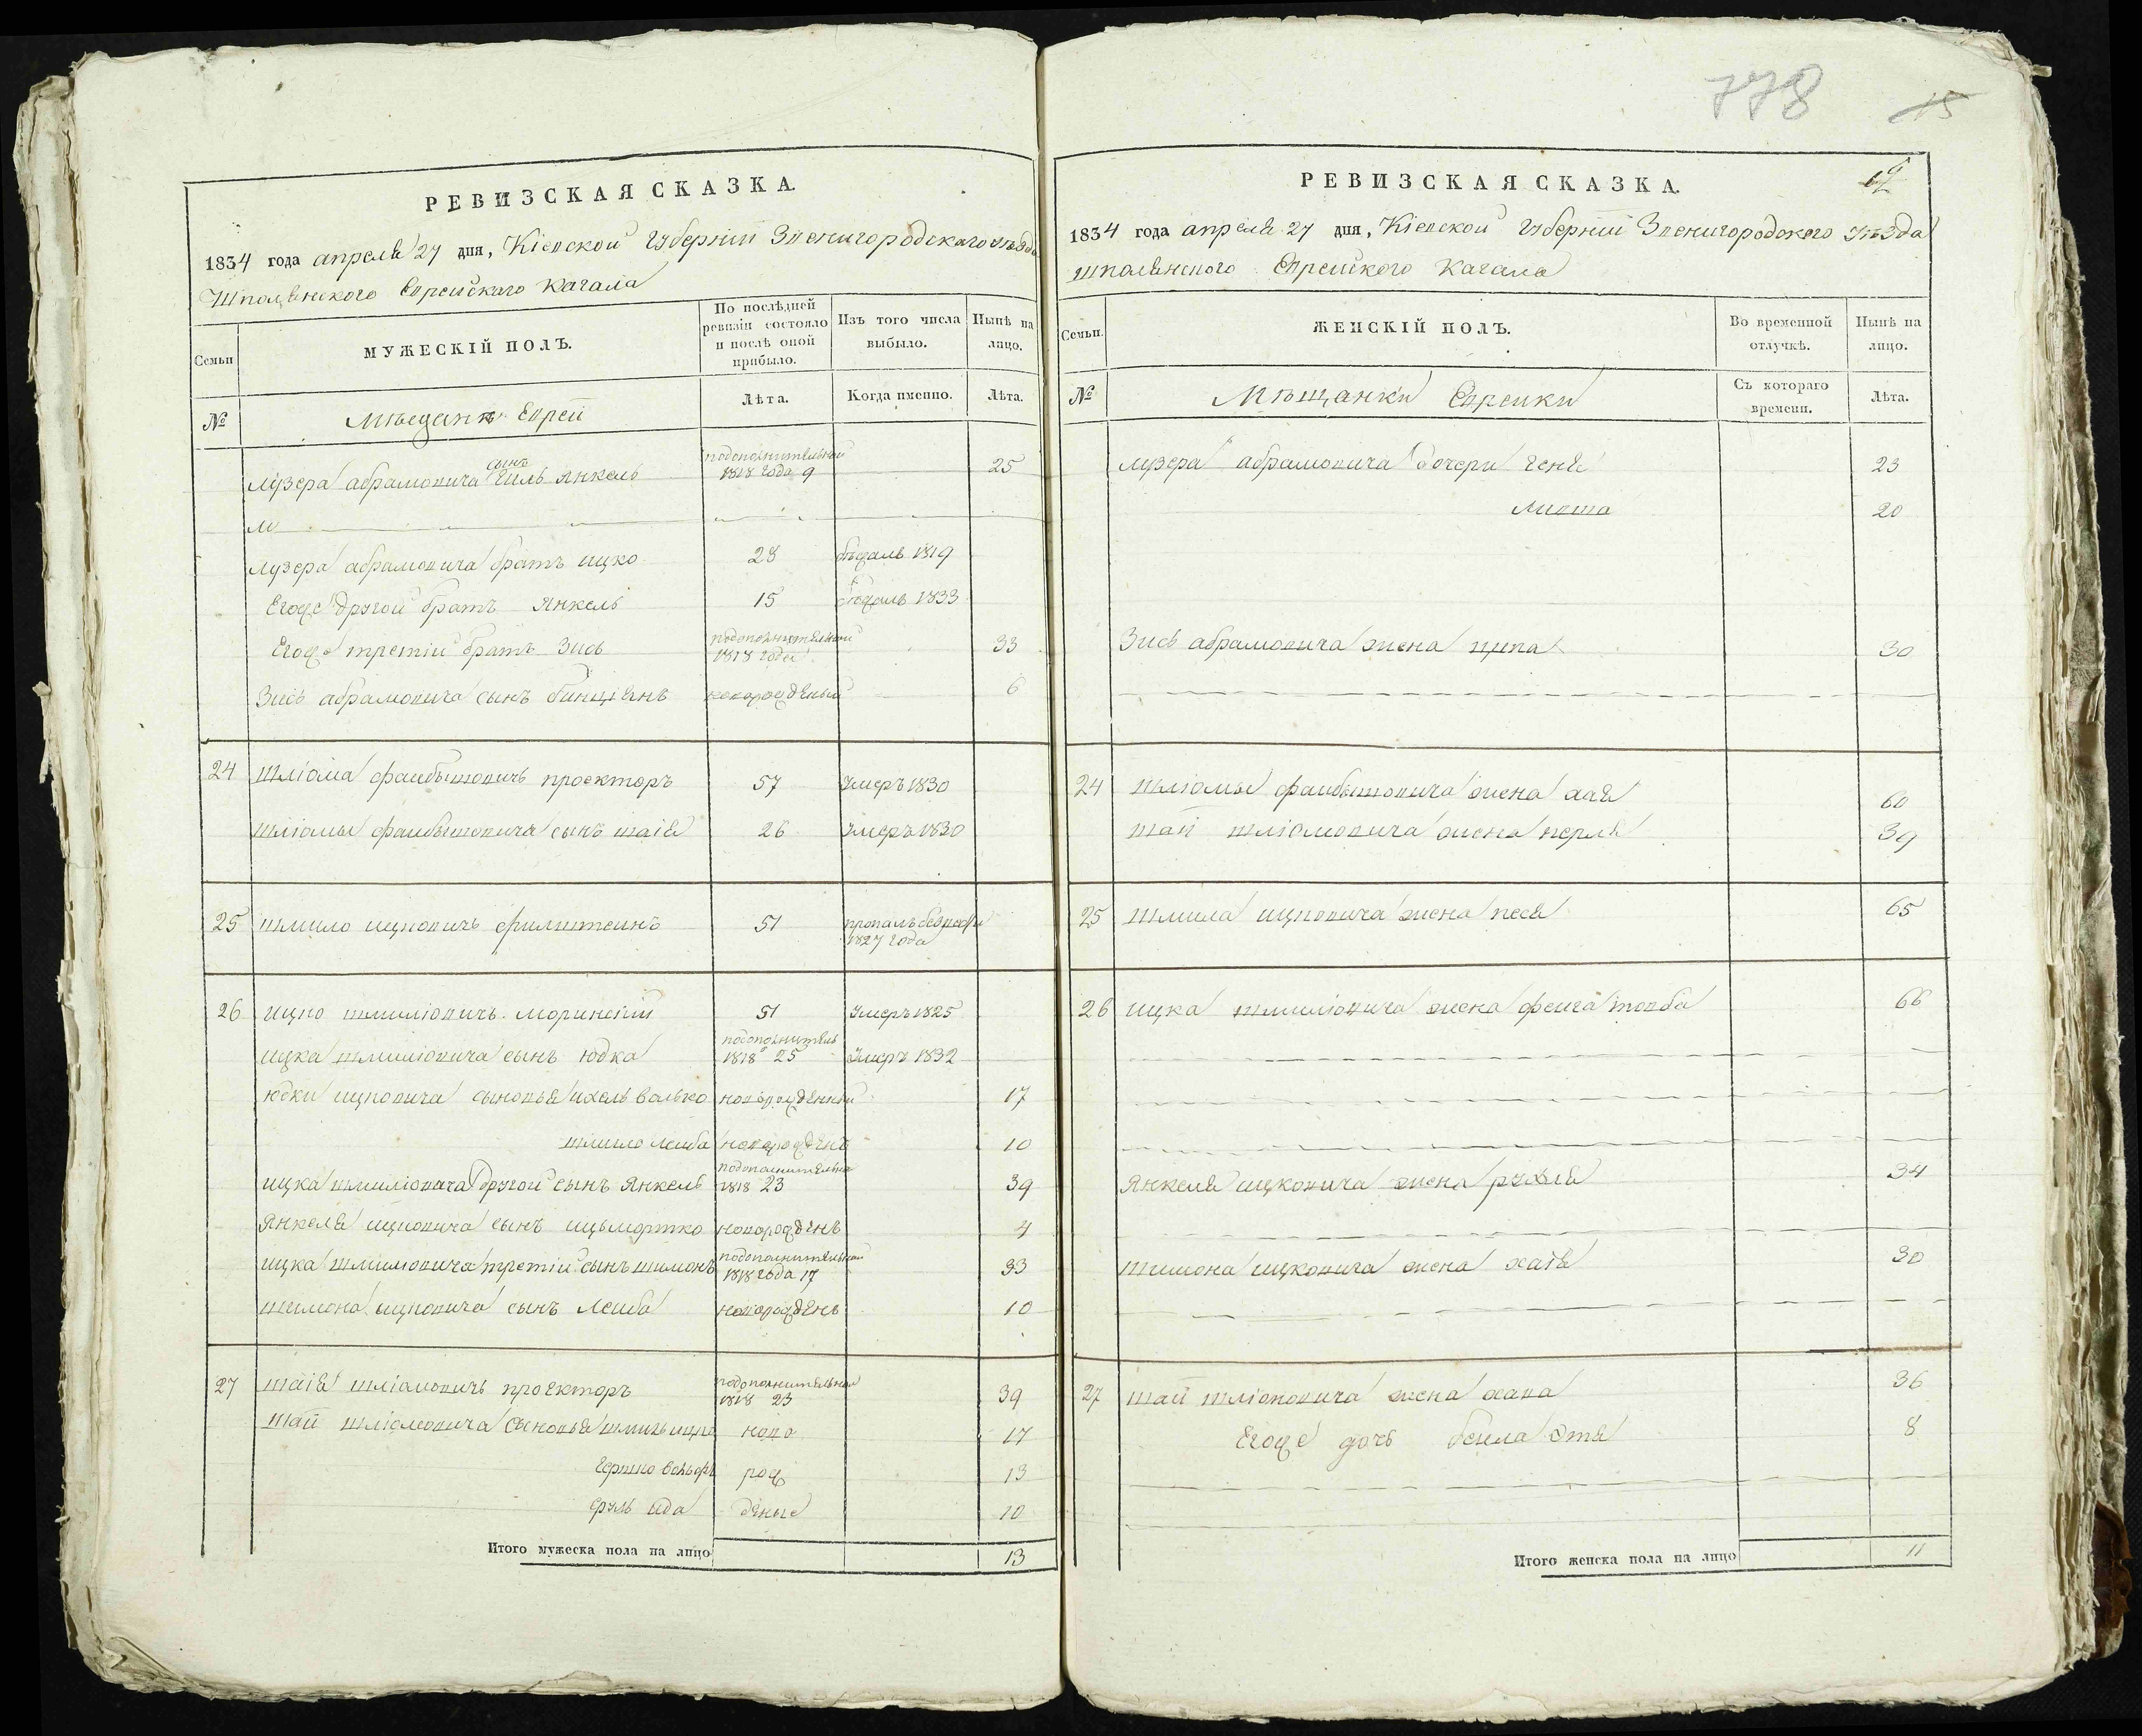 778
15
РЕВИЗСКАЯ СКАЗКА.
1834 года апреля 27 дня, Кіевской Губерніи Звенигородского уѣзда
Шполянского Еврейскаго Кагала
Семьи
МУЖЕСКІЙ ПОЛЪ.
По послѣдней ревизіи состояло и послѣ оной прибыло.
Изъ того числа выбыло.
Нынѣ на лицо.
№
Еврей
Лѣта.
Когда именно.
Лѣта.
лузера абрамовича сынъ Гиль Янкель подополнительной 1818 года 9 25
лузера абрамовича братъ ицко 28 бѣжалъ 1819
Егоже другой братъ Янкель 15 бѣжалъ 1833
Егоже третий братъ Зись подополнительной 1818 года 33
Зись абрамовича сынъ бинціянъ новорожденый 6
24 шліома фаибишовичъ проекторъ 57 умеръ 1830
шліомы фаибишовича сынъ шаія 26 умеръ 1830
25 шмило ицковичъ филштеинъ 51 пропалъ 1827 года
26 ицко шмиліовичъ моринскій 51 умеръ 1825
ицка шмиліовича сынъ юдка подополнитель 1818 25 умеръ 1832
юдки ицковича сыновья ихель волько новорожденный 17
шмило леиба новорожденъ 10
ицка шмиліовича другой сынъ Янкель подополнительной 1818 23 39
Янкеля ицковича сынъ ицьмортко новорожденъ 4
ицка шмиловича третій сынъ шимонъ подополнительной 1818 года 17 33
шимона ицковича сынъ Леиба новорожденъ 10
27 шаія шліомовичъ проекторъ подополнительной 1818 23 39
шаи шліомовича сыновья шмиль ицко ново 17
Гершко вольфъ рож 13
сруль ида деные 10
Итого мужеска пола на лицо 13
РЕВИЗСКАЯ СКАЗКА.
1834 года апреля 27 дня, Кіевской Губерніи Звенигородского уѣзда
шполянского Еврейского Кагала
Семьи.
ЖЕНСКІЙ ПОЛЪ.
Во временной отлучкѣ.
Нынѣ на лицо.
№
Мѣщанки Евреики
Съ котораго времени.
Лѣта.
лузера абрамовича дочери Геня 23
20
Зись абрамовича жена ципа 30
24 шліомы фаибишовича жена хая 60
шаи шліомовича жена перля 39
25 шмила ицковича жена песя 65
26 ицка шмиліовича жена феига товба 66
Янкеля ицковича жена рухля 34
шимона ицковича жена хаія 30
27 шаи шліомовича жена хана 36
Егоже дочь беила Этя 8
Итого женска пола на лицо 11